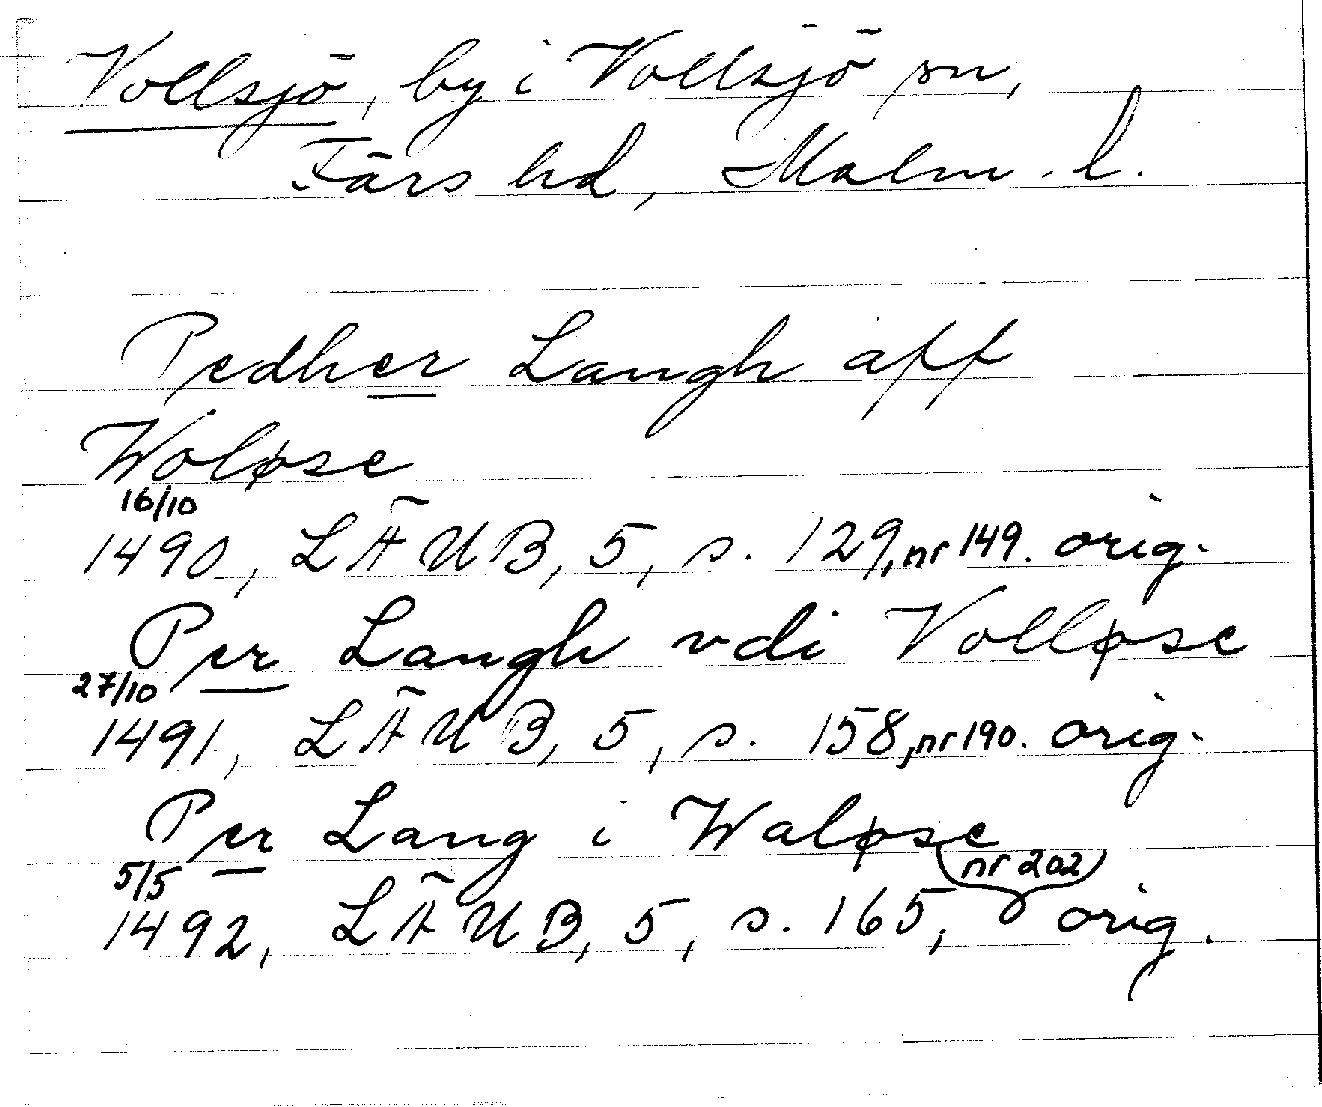 Vollsjö, by i Vollsjö sn,
Färs hd, Malm. l.
Pedher Langh aff
Woløse
16/10
1490, LÄUB, 5, s. 129, nr 149. orig.
Per Langh vdi Volløse
27/10
1491, LÄUB, 5, s. 158, nr 190. orig.
Per Lang i Waløse
5/5 nr 202
1492, LÄUB, 5, s. 165, orig.